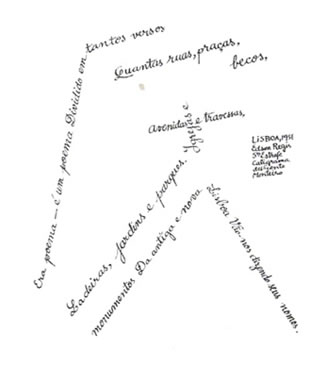 Era poema — é um poema Dividido em tantos versos
Quantas ruas, praças,
becos,
avenidas e travessas,
Igrejas e
Ladeiras, jardins e parques.
monumentos Da antiga e nova
Lisboa Vão-nos dizendo seus nomes.
LISBOA,
Edson Regis
5ª Estrofe
Caligrama
Monteiro